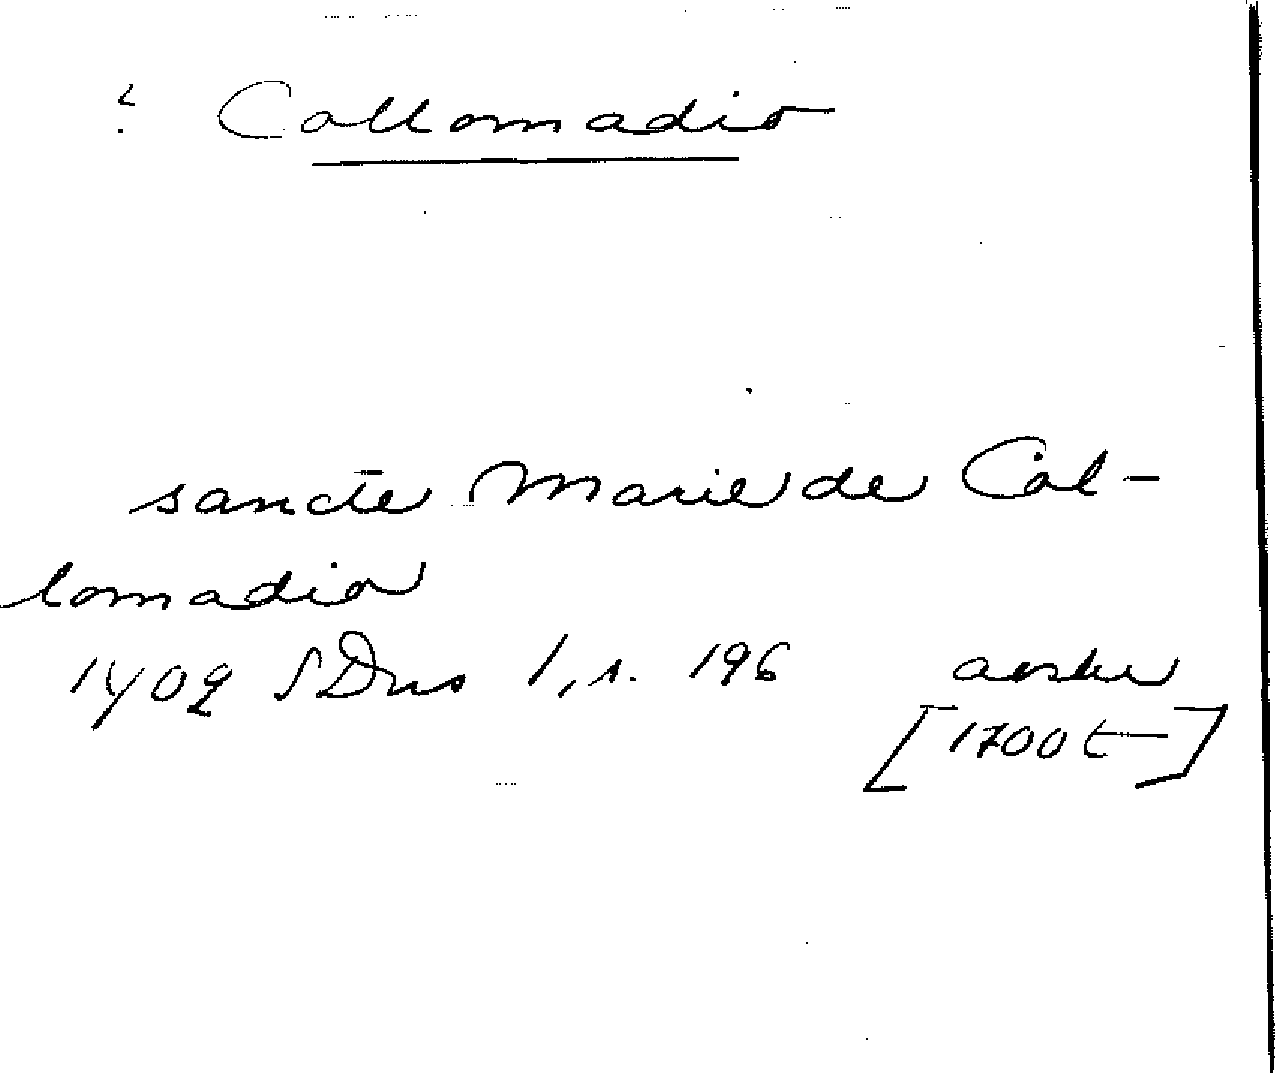 ? Collomadio
sancte Marie de Col-
lomadio
1402 SDns 1, s. 196 avskr
[1700 t]